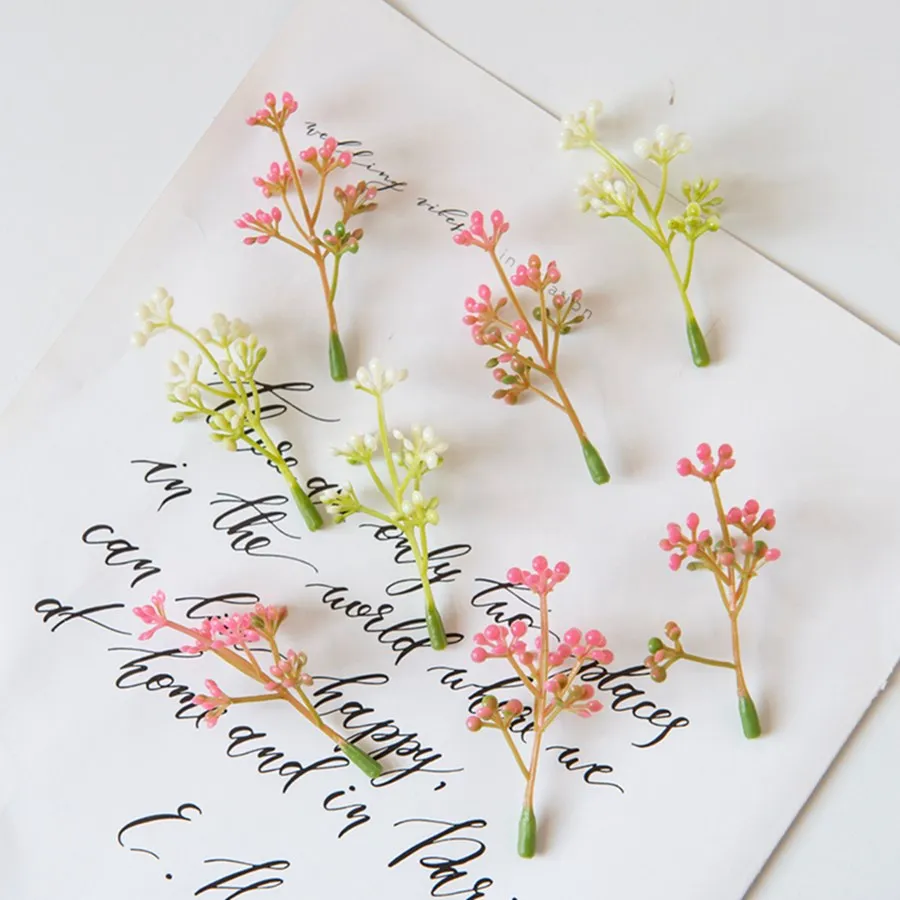 wedding vibes
in
only two places
in the world where we
can happy,
at home and in Par
E.